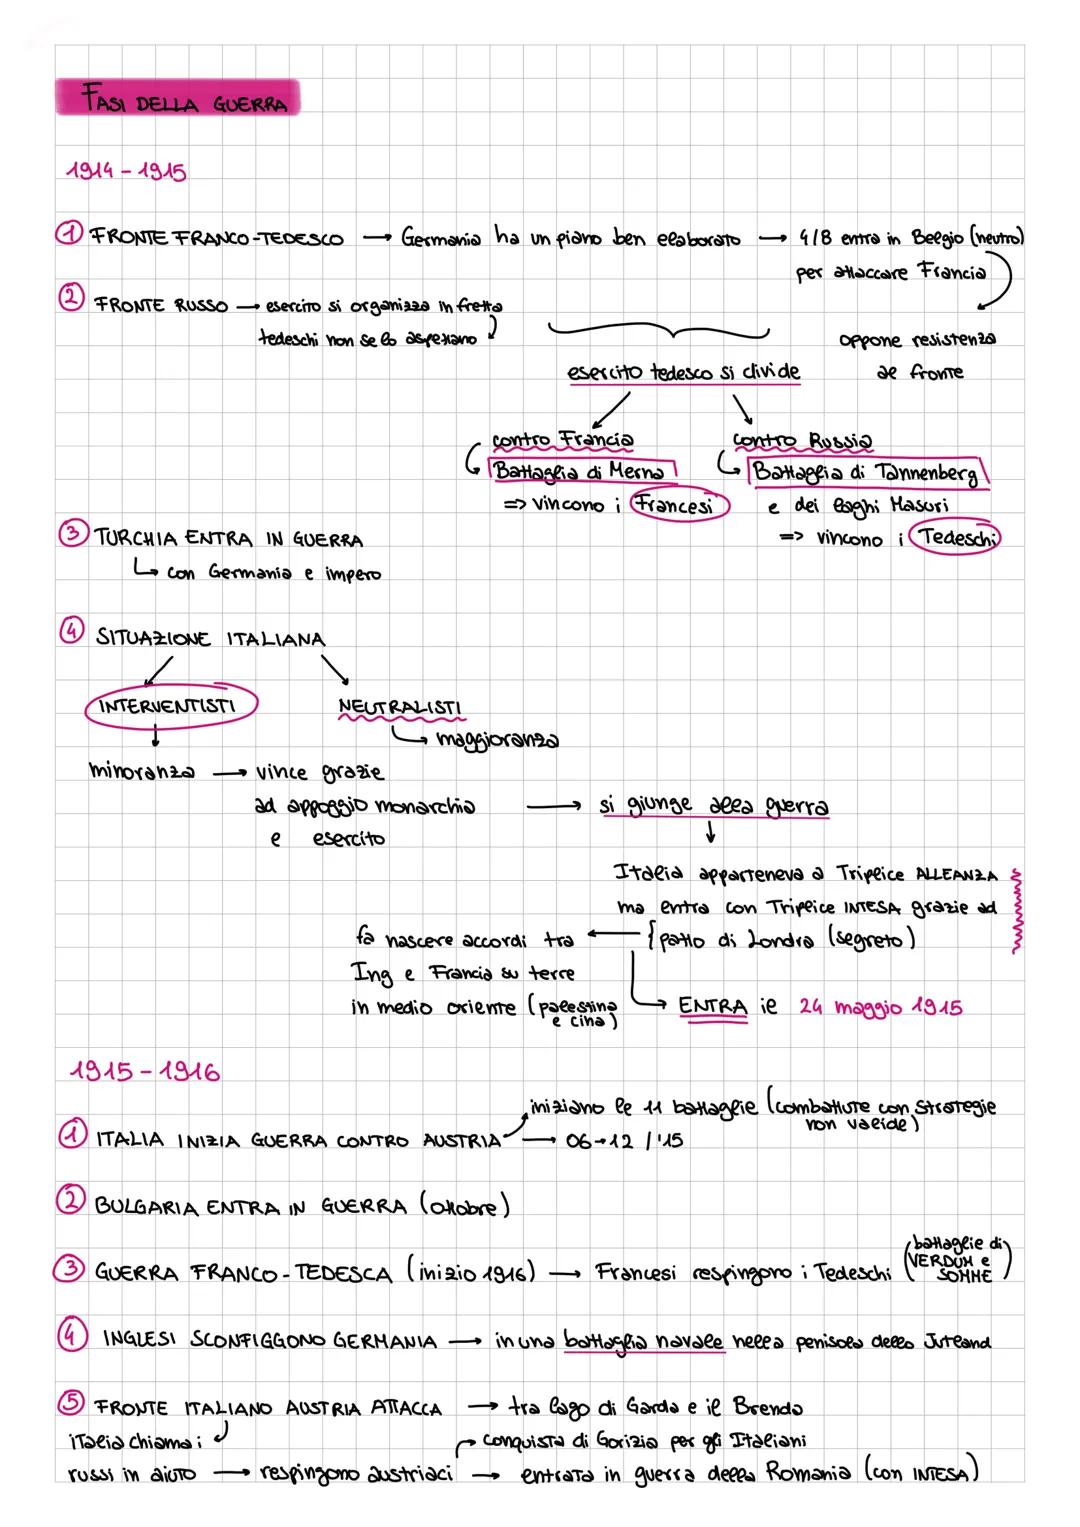 FASI DELLA GUERRA
1914 - 1915
① FRONTE FRANCO-TEDESCO → Germania ha un piano ben elaborato → 4/8 entra in Belgio (neutro)
per attaccare Francia
② FRONTE RUSSO → esercito si organizza in fretta
tedeschi non se lo aspettano
oppone resistenza
al fronte
esercito tedesco si divide
contro Francia
Battaglia di Merna
=> vincono i Francesi
contro Russia
Battaglia di Tannenberg
e dei laghi Masuri
=> vincono i Tedeschi
③ TURCHIA ENTRA IN GUERRA
↳ con Germania e impero
④ SITUAZIONE ITALIANA
INTERVENTISTI
NEUTRALISTI
↳ maggioranza
minoranza → vince grazie
ad appoggio monarchia → si giunge alla guerra
e esercito
Italia apparteneva a Triplice ALLEANZA
ma entra con Triplice INTESA grazie ad
{ patto di Londra (segreto)
fa nascere accordi tra
Ing e Francia su terre
in medio oriente (palestina
e cina)
→ ENTRA il 24 maggio 1915
1915 - 1916
iniziano le 11 battaglie (combattute con strategie
non valide)
① ITALIA INIZIA GUERRA CONTRO AUSTRIA → 06→12 /'15
② BULGARIA ENTRA IN GUERRA (ottobre)
③ GUERRA FRANCO-TEDESCA (inizio 1916) → Francesi respingono i Tedeschi (battaglie di
VERDUM e
SOMME)
④ INGLESI SCONFIGGONO GERMANIA → in una battaglia navale nella penisola dello Jutland
⑤ FRONTE ITALIANO AUSTRIA ATTACCA → tra lago di Garda e il Brenda
italia chiama i
russi in aiuto → respingono austriaci → entrata in guerra della Romania (con INTESA)
→ conquista di Gorizia per gli Italiani